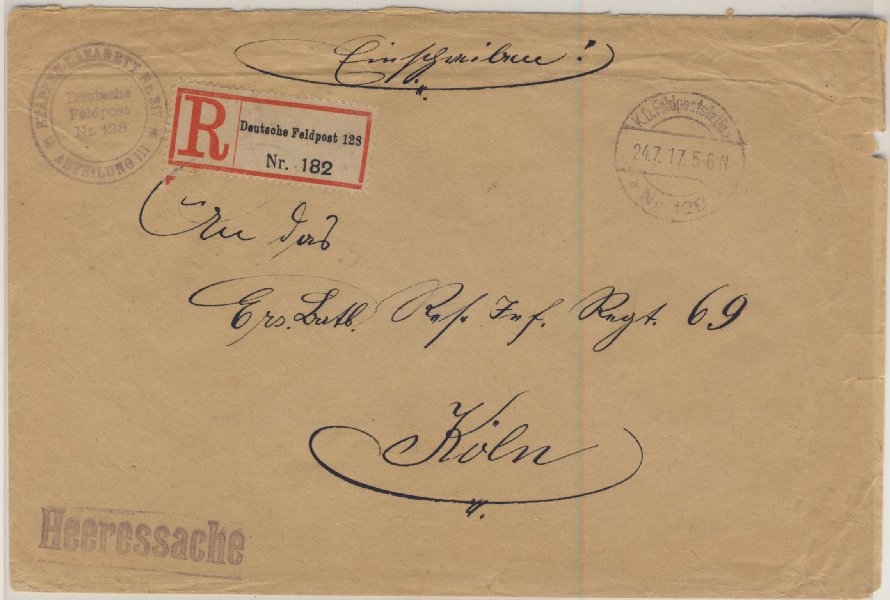 Einschreiben!
LAZARETT Nr.
Deutsche
Feldpost
Nr. 128
ABTEILUNG III
R
Deutsche Feldpost 128
Nr. 182
K.D. Feldpost
24.7.17. 5-6 N
Nr. 128
An das
Ers. Batl. Res. Inf. Regt. 69
Köln
Heeressache